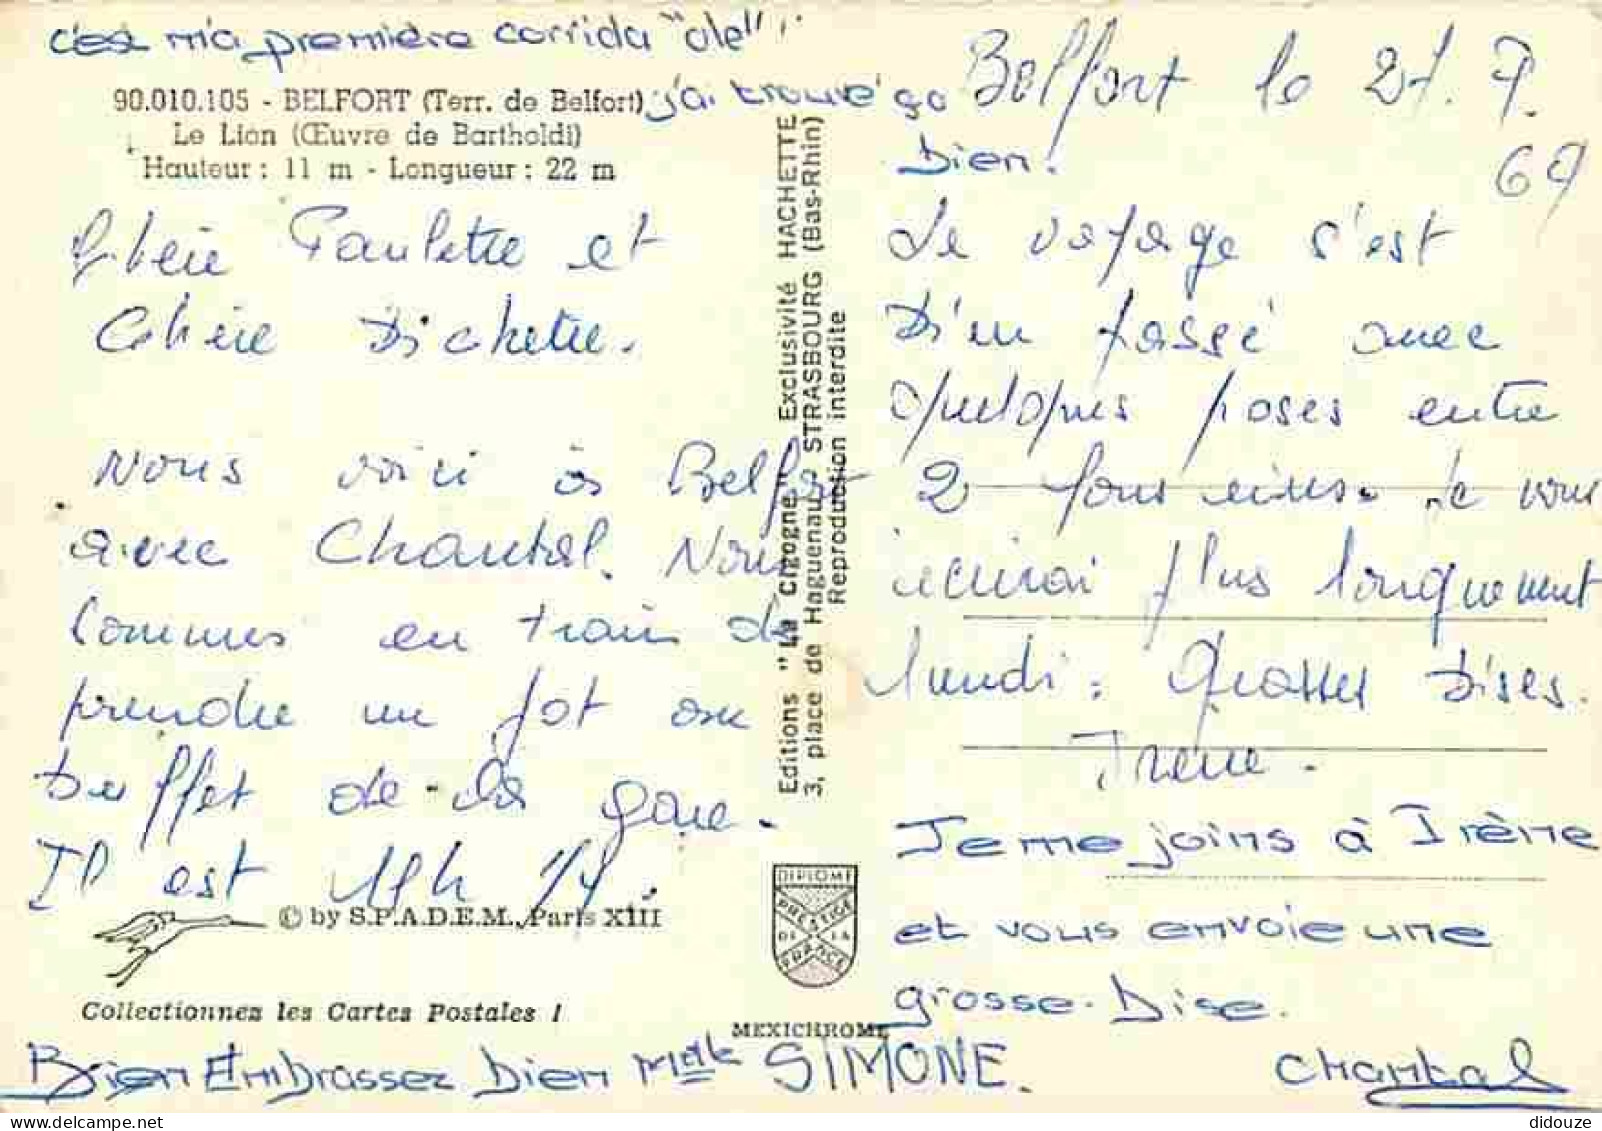 c'est ma première corrida "olé".
j'ai trouvé ça
bien.
90.010.105 - BELFORT (Terr. de Belfort)
Le Lion (Œuvre de Bartholdi)
Hauteur : 11 m - Longueur : 22 m
Chère Paulette et
Chère Bichette.
Nous voici à Belfort
avec Chantal. Nous
sommes en train de
prendre un pot au
buffet de la gare.
Il est 11h 14.
© by S.P.A.D.E.M., Paris XIII
Collectionnez les Cartes Postales !
Editions "La Cigogne" Exclusivité HACHETTE
3, place de Haguenau - STRASBOURG (Bas-Rhin)
Reproduction interdite
DIPLOME
PRESTIGE
DE LA
FRANCE
MEXICHROME
Belfort le 21. 7.
69
Le voyage s'est
bien passé avec
quelques poses entre
2. Je vous
écrirai plus longuement
lundi. Grosses bises.
Irène.
Je me joins à Irène
et vous envoie une
grosse bise.
Chantal
Bien Embrassez bien SIMONE.
didouze